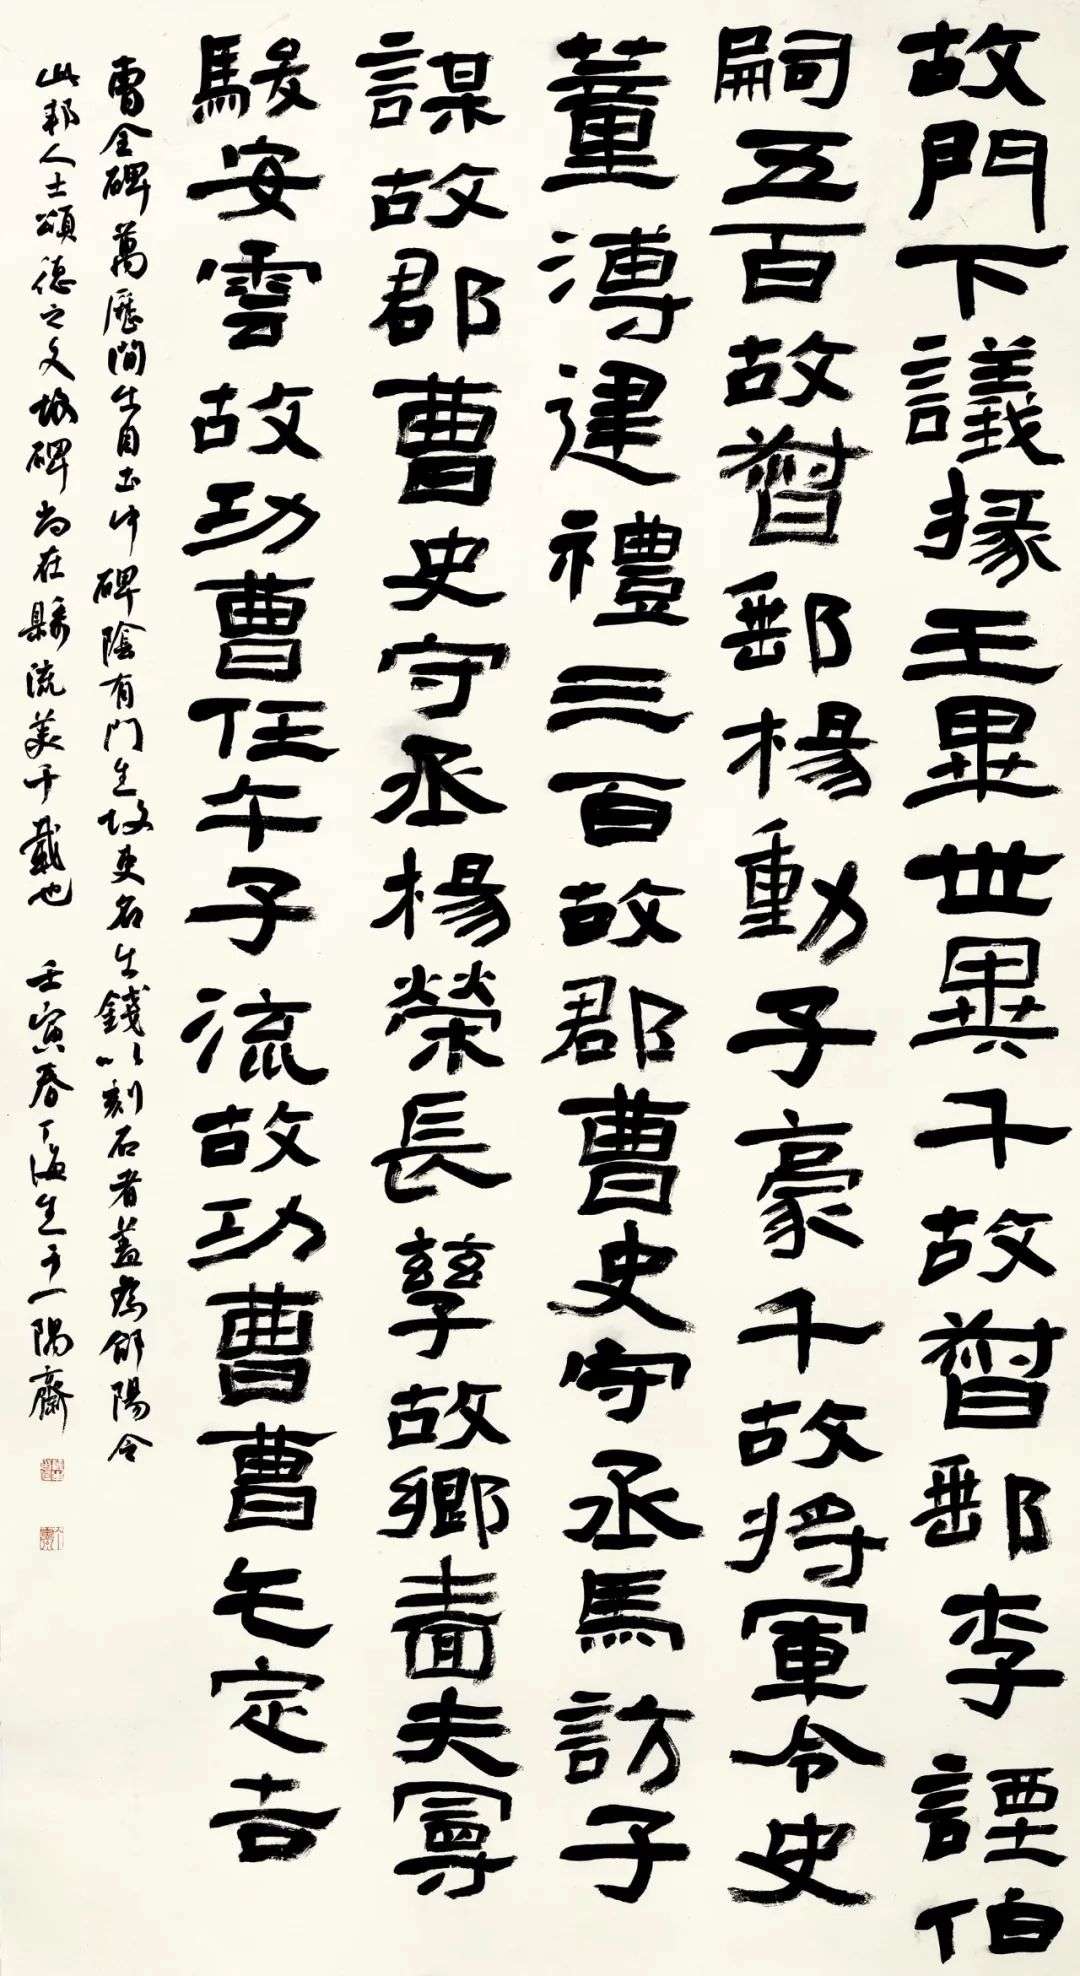 故門下議掾王畢世異千故督郵李諲伯
嗣五百故督郵楊動子豪千故將軍令史
董溥建禮三百故郡曹史守丞馬訪子
謀故郡曹史守丞楊榮長孳故鄉嗇夫曼
駿安雲故功曹任午子流故功曹曹屯定吉
曹全碑萬歷間出自土中碑陰有門生故吏名出錢以刻石者蓋為郃陽令
此邦人士頌德之文故碑尚在縣流美千載也 壬寅春丁海生于一隅齋